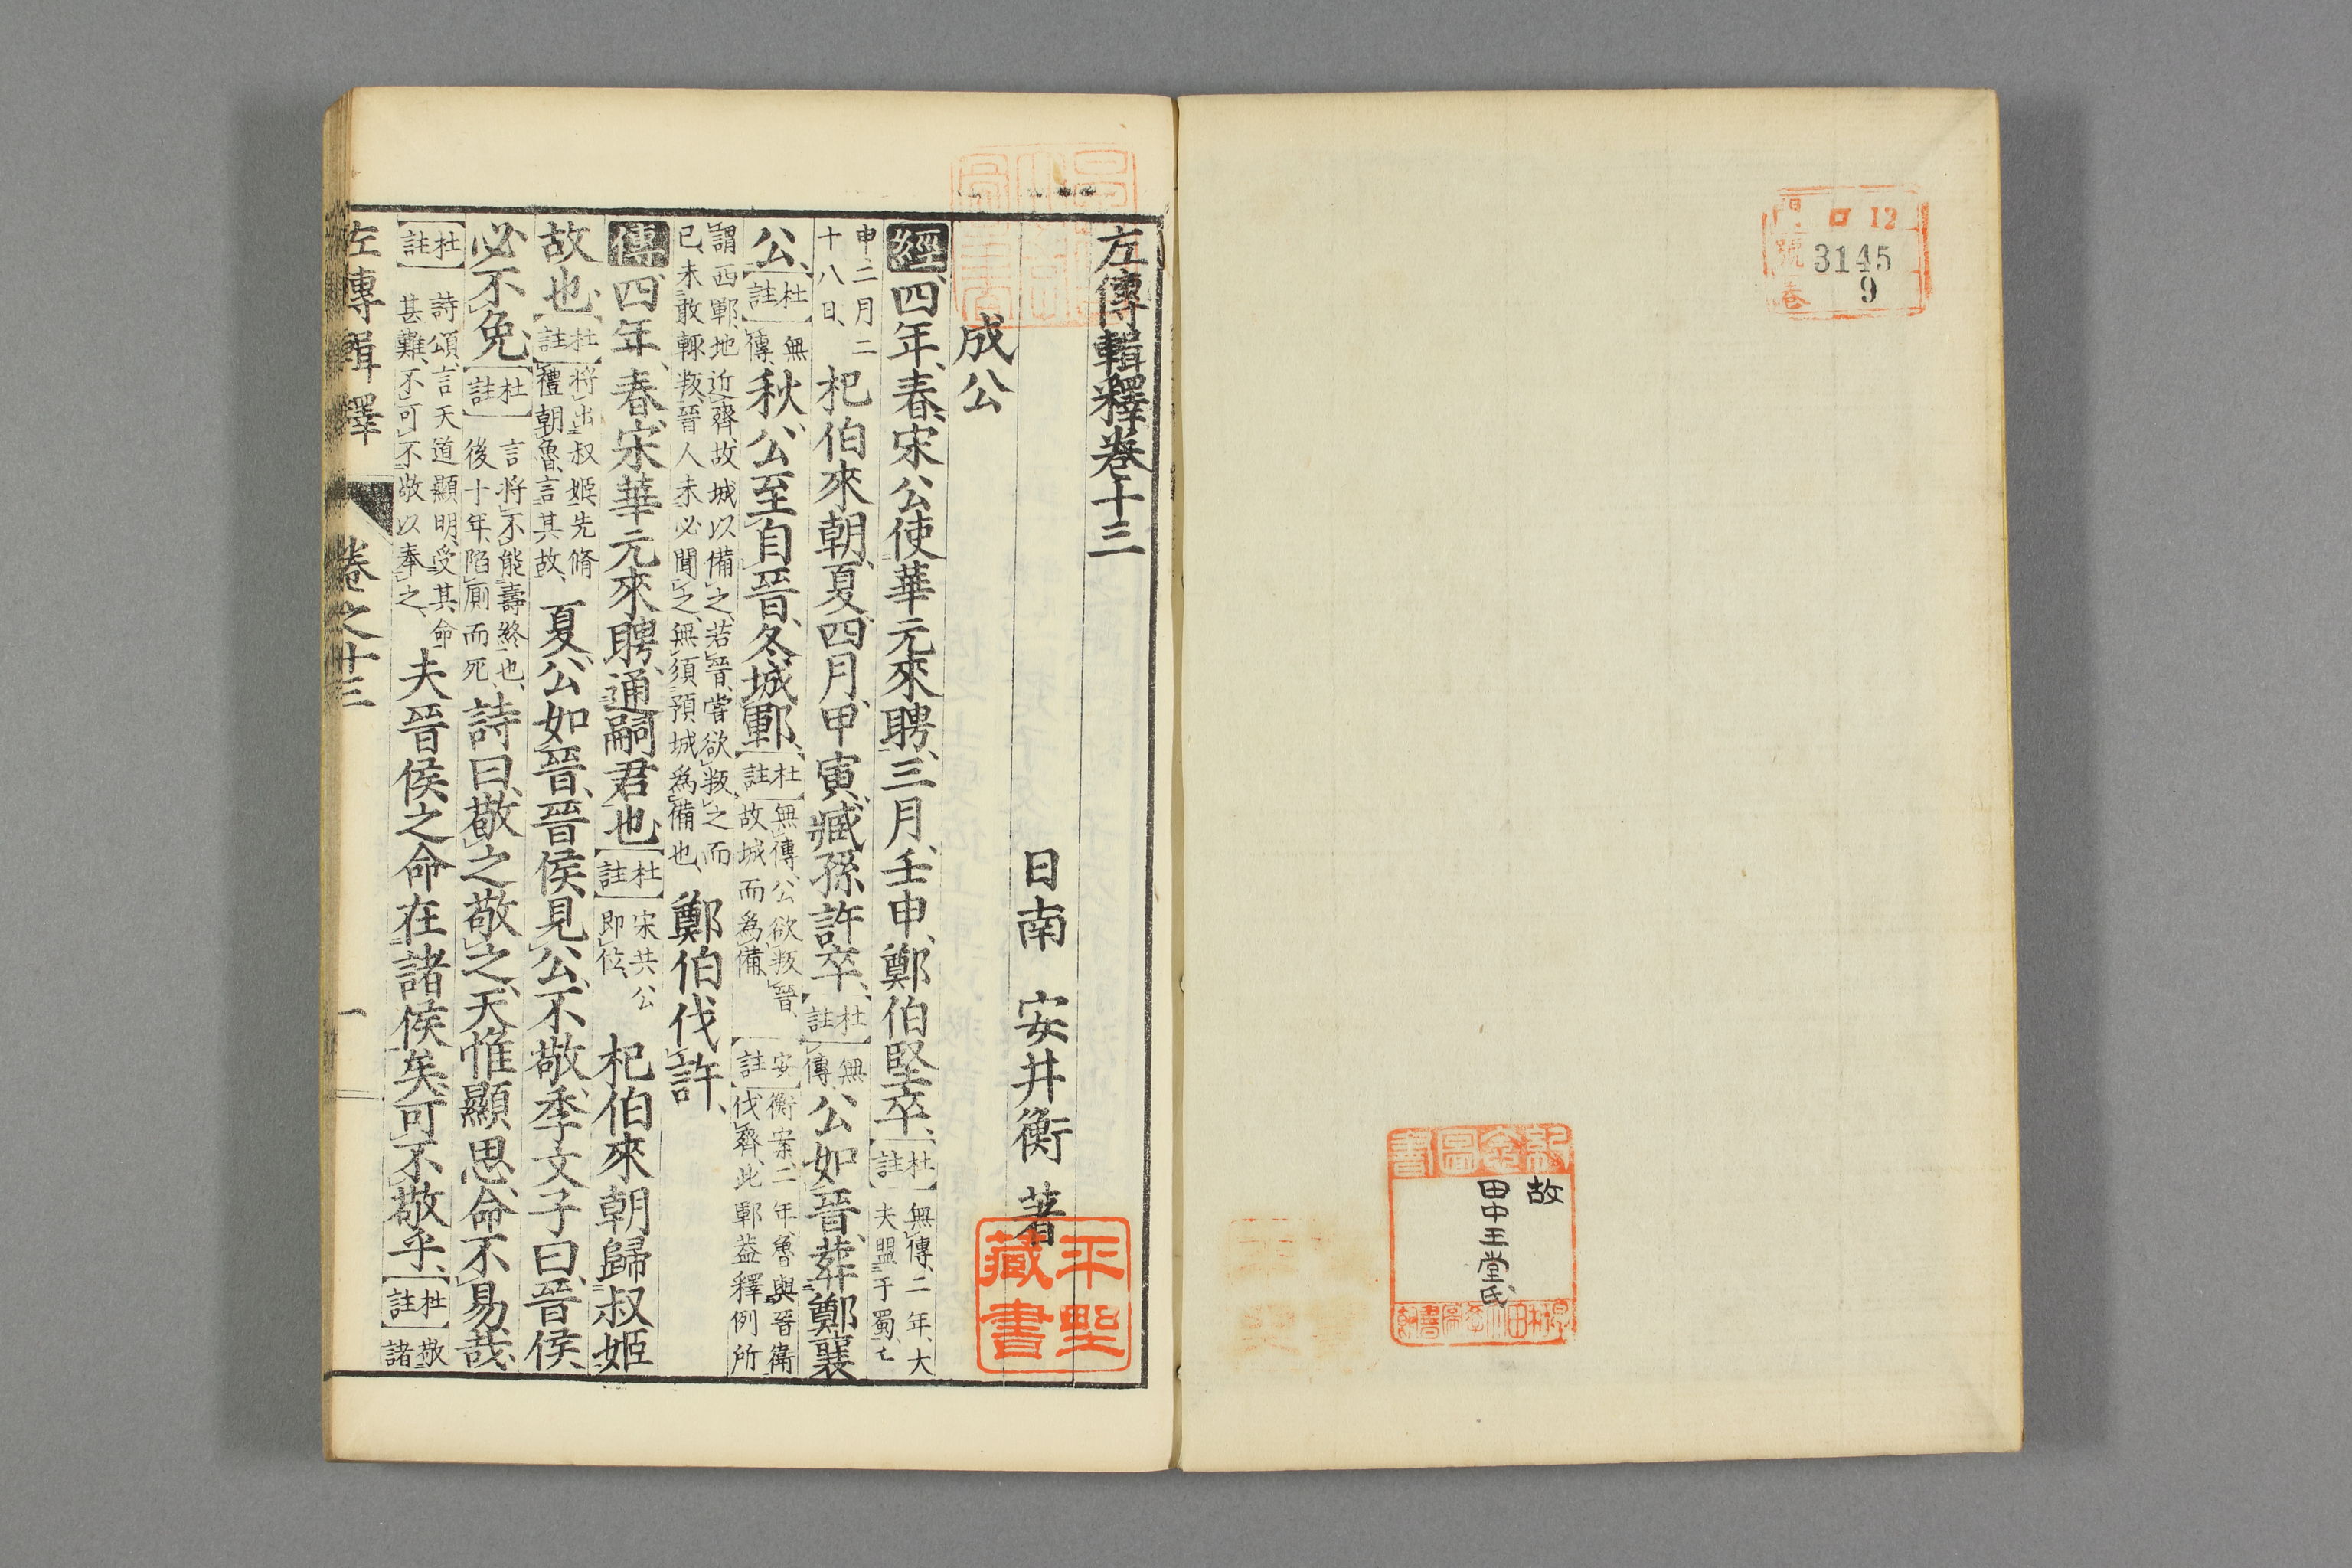 ロ 12
號 3145
卷 9
紀念圖書
故
田中王堂氏
左傳輯釋卷十三
日南 安井衡 著
平聖藏書
成公
經四年、春、宋公使華元來聘、三月、壬申、鄭伯堅卒、【杜註】無傳、二年、大夫盟于蜀、七
申二月二十八日、杞伯來朝、夏、四月、甲寅、臧孫許卒、【杜註】無傳、公如晉、葬鄭襄
公、【杜註】無傳、秋、公至自晉、冬、城鄆、【杜註】無傳、公欲叛晉、故城而爲備、【安註】衡案、二年、魯與晉衞伐齊、此鄆葢釋例所
謂西鄆、地近齊、故城以備之、若晉、嘗欲叛之而已、未敢輒叛、晉人未必聞之、無須預城爲備也、鄭伯伐許、
傳四年、春、宋華元來聘、通嗣君也、【杜註】宋共公即位、杞伯來朝、歸叔姬
故也、【杜註】將出叔姬、先脩禮朝魯、言其故、夏、公如晉、晉侯見公、不敬、季文子曰、晉侯
必不免、【杜註】言將不能壽終也、後十年、陷厠而死、詩曰、敬之敬之、天惟顯思、命不易哉、
【杜註】詩頌、言天道顯明、受其命甚難、不可不敬以奉之、夫晉侯之命在諸侯矣、可不敬乎、【杜註】敬諸
左傳輯釋 卷之十三 一